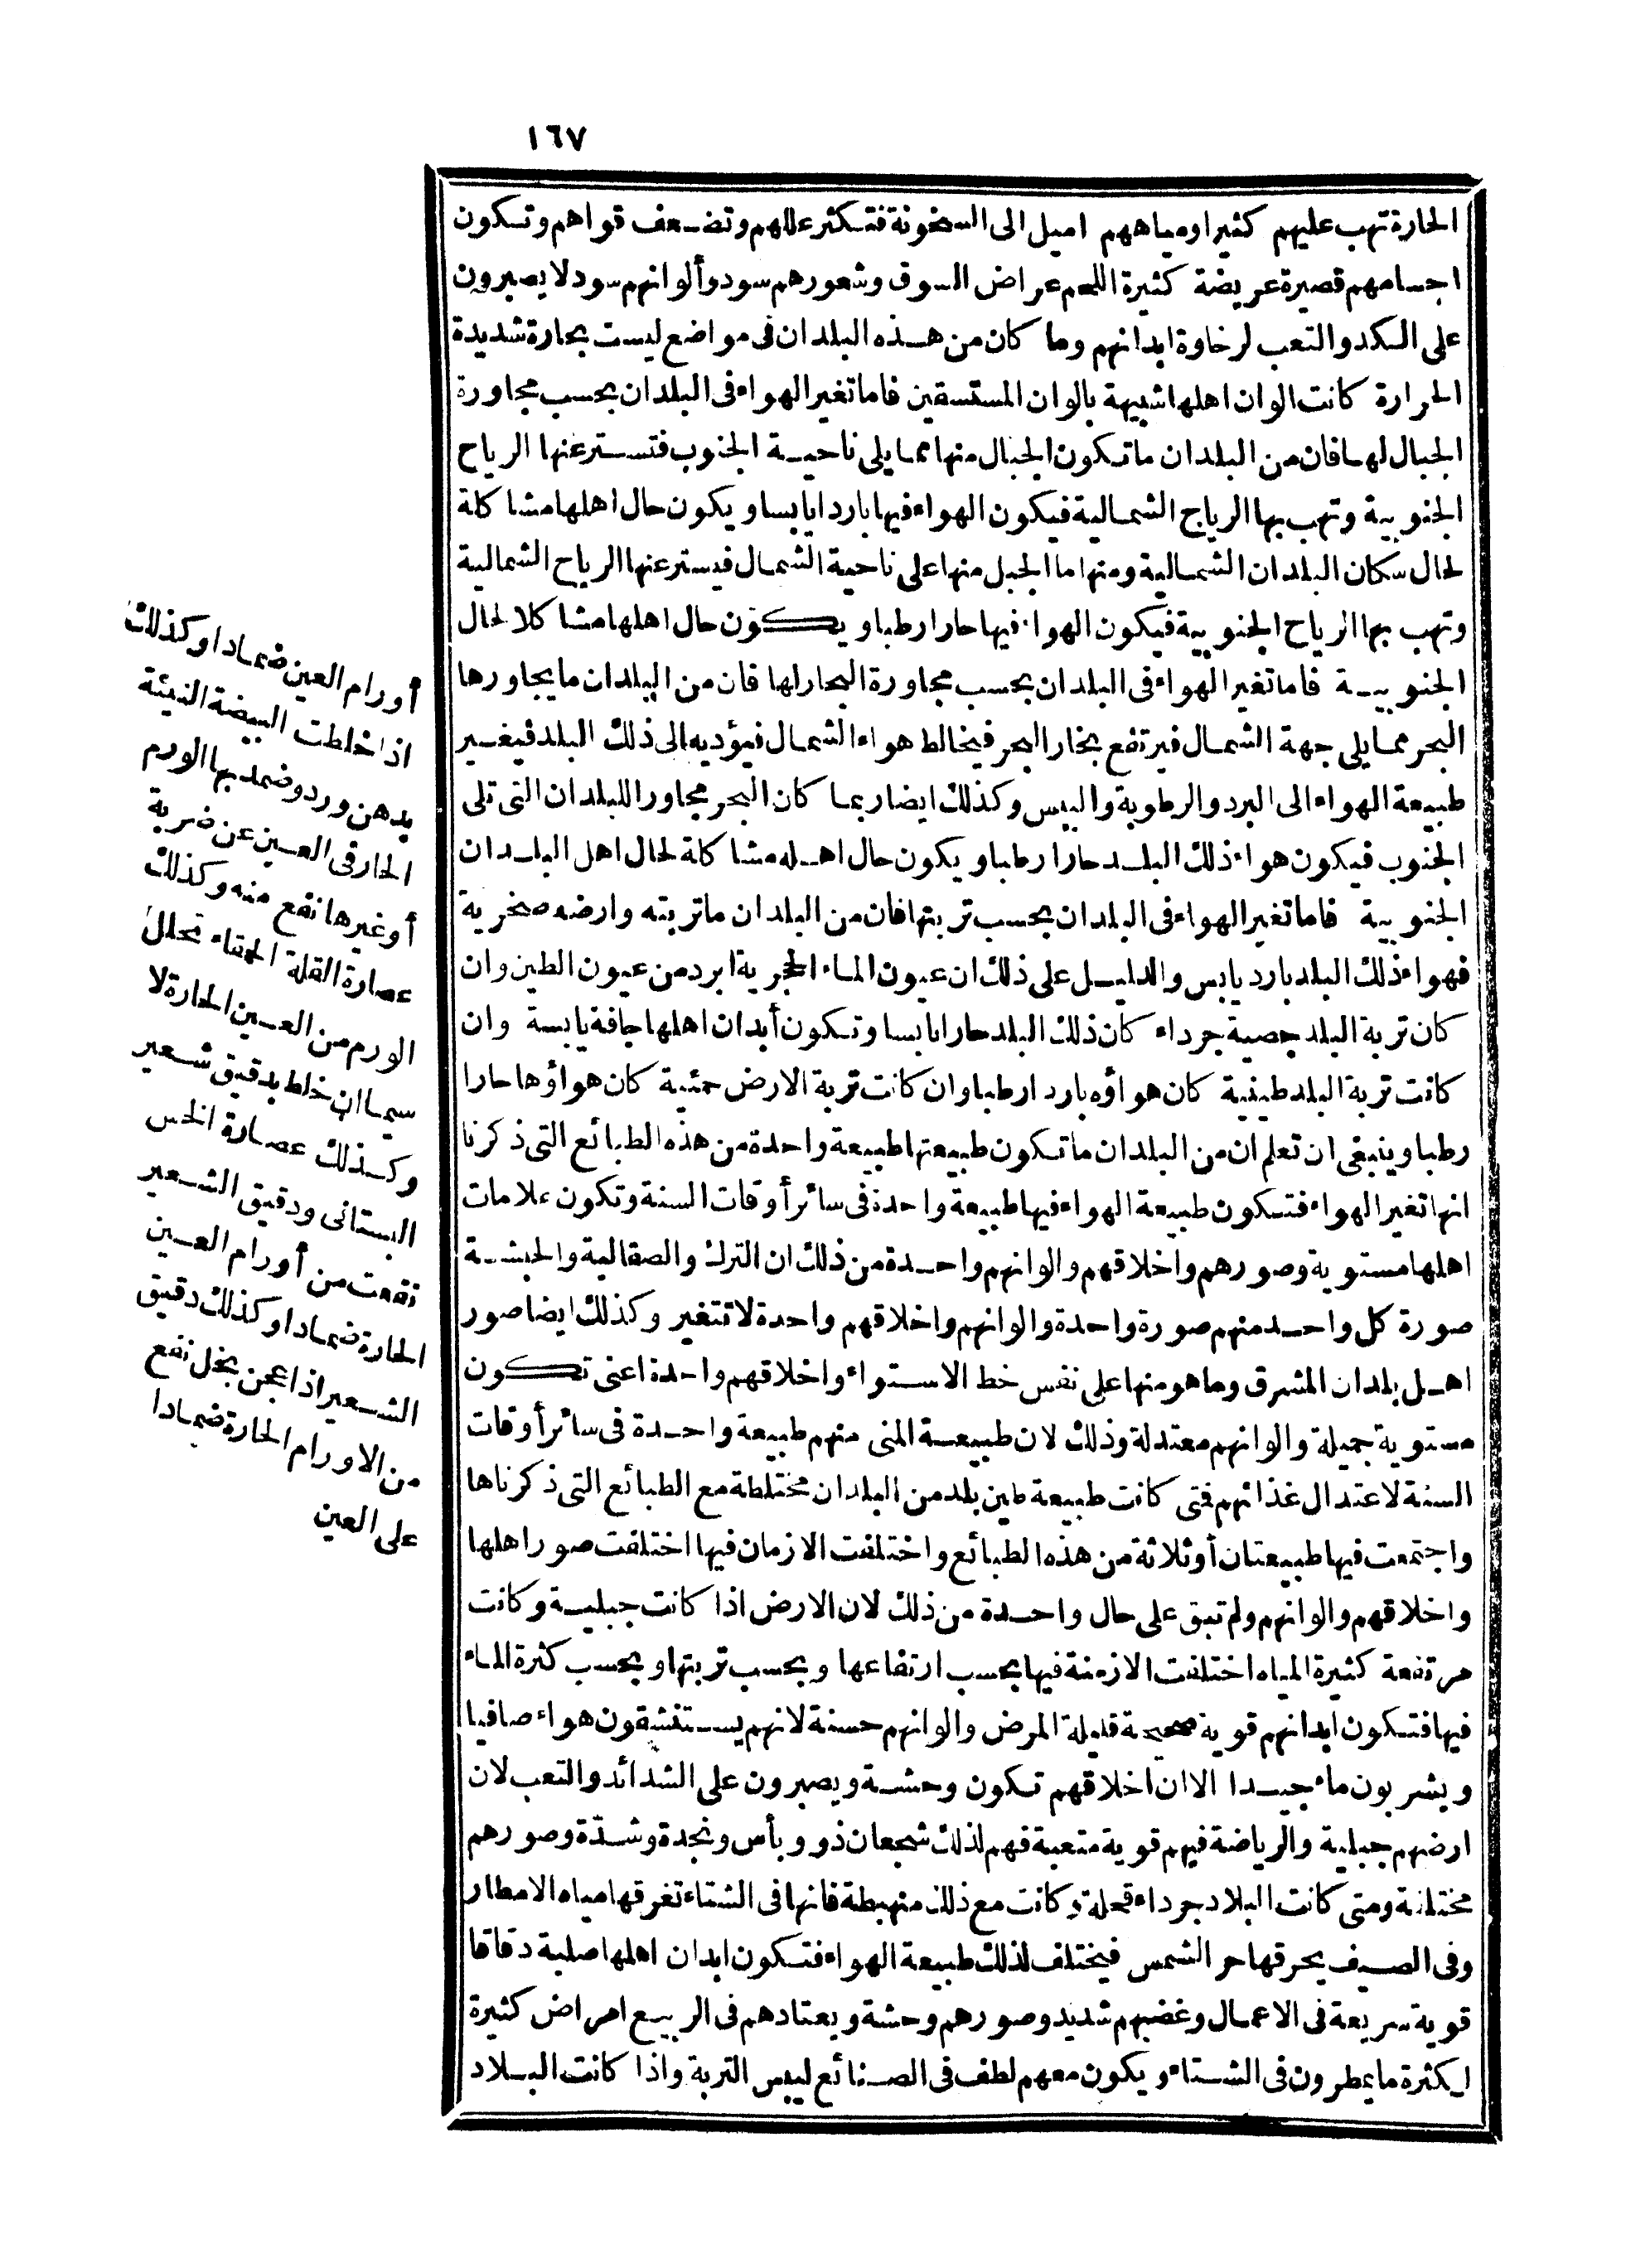 ١٦٧
الحارة تهب عليهم كثيرا ومياههم اميل الى السخونة فتكثر عللهم وتضعف قواهم وتكون
اجسامهم قصيرة عريضة كثيرة اللحم عراض السوق وشعورهم سود وألوانهم سود لا يصبرون
على الكد والتعب لرخاوة ابدانهم وما كان من هذه البلدان فى مواضع ليست بحارة شديدة
الحرارة كانت الوان اهلها شبيهة بالوان المستسقين فاما تغير الهواء فى البلدان بحسب مجاورة
الجبال لها فان من البلدان ما تكون الجبال منها مما يلى ناحية الجنوب فتستر عنها الرياح
الجنوبية وتهب بها الرياح الشمالية فيكون الهواء فيها باردا يابسا ويكون حال اهلها مشاكلة
لحال سكان البلدان الشمالية ومنها ما الجبل منها على ناحية الشمال فيستر عنها الرياح الشمالية
وتهب بها الرياح الجنوبية فيكون الهواء فيها حارا رطبا ويكون حال اهلها مشاكلا لحال
الجنوبية فاما تغير الهواء فى البلدان بحسب مجاورة البحار لها فان من البلدان ما يجاورها
البحر مما يلى جهة الشمال فيرتفع بخار البحر فيخالط هواء الشمال فيؤديه الى ذلك البلد فيغير
طبيعة الهواء الى البرد والرطوبة واليبس وكذلك ايضا ربما كان البحر مجاورا للبلدان التى تلى
الجنوب فيكون هواء ذلك البلد حارا رطبا ويكون حال اهله مشاكلة لحال اهل البلدان
الجنوبية فاما تغير الهواء فى البلدان بحسب تربتها فان من البلدان ما تربته وارضه صخرية
فهواء ذلك البلد بارد يابس والدليل على ذلك ان عيون الماء الحجرية ابرد من عيون الطين وان
كان تربة البلد جصية جرداء كان ذلك البلد حارا يابسا وتكون أبدان اهلها جافة يابسة وان
كانت تربة البلد طينية كان هواؤه باردا رطبا وان كانت تربة الارض حمئية كان هواؤها حارا
رطبا وينبغى ان تعلم ان من البلدان ما تكون طبيعتها طبيعة واحدة من هذه الطبائع التى ذكرنا
انها تغير الهواء فتكون طبيعة الهواء فيها طبيعة واحدة فى سائر أوقات السنة وتكون علامات
اهلها مستوية وصورهم واخلاقهم والوانهم واحدة من ذلك ان الترك والصقالبة والحبشة
صورة كل واحد منهم صورة واحدة والوانهم واخلاقهم واحدة لا تتغير وكذلك ايضا صور
اهل بلدان المشرق وما هو منها على نفس خط الاستواء واخلاقهم واحدة اعنى تكون
مستوية جميلة والوانهم معتدلة وذلك لان طبيعة المنى منهم طبيعة واحدة فى سائر أوقات
السنة لاعتدال غذائهم فتى كانت طبيعة طين بلد من البلدان مختلطة مع الطبائع التى ذكرناها
واجتمعت فيها طبيعتان أو ثلاثة من هذه الطبائع واختلفت الازمان فيها اختلفت صور اهلها
واخلاقهم والوانهم ولم تبق على حال واحدة من ذلك لان الارض اذا كانت جبلية وكانت
مرتفعة كثيرة المياه اختلفت الازمنة فيها بحسب ارتفاعها وبحسب تربتها وبحسب كثرة الماء
فيها فتكون ابدانهم قوية صحيحة قليلة المرض والوانهم حسنة لانهم يستنشقون هواء صافيا
ويشربون ماء جيدا الا ان اخلاقهم تكون وحشة ويصبرون على الشدائد والتعب لان
ارضهم جبلية والرياضة فيهم قوية متعبة فهم لذلك شجعان ذوو بأس ونجدة وشدّة وصورهم
مختلفة ومتى كانت البلاد جرداء قحلة وكانت مع ذلك منهبطة فانها فى الشتاء تغرقها مياه الامطار
وفى الصيف يحرقها حر الشمس فيختلف لذلك طبيعة الهواء فتكون ابدان اهلها صلبة دقاقا
قوية سريعة فى الاعمال وغضبهم شديد وصورهم وحشة ويعتادهم فى الربيع امراض كثيرة
لكثرة ما يمطرون فى الشتاء ويكون معهم لطف فى الصنائع ليبس التربة واذا كانت البلاد
أورام العين ضمادا وكذلك
اذا خلطت البيضة النيئة
بدهن ورد وضمد بها الورم
الحار فى العين عن ضربة
أو غيرها نفع منه وكذلك
عصارة القلة الحمقاء تحلل
الورم من العين الحارة لا
سيما ان خلط بدقيق شعير
وكذلك عصارة الخس
البستانى ودقيق الشعير
نفعت من أورام العين
الحارة ضمادا وكذلك دقيق
الشعير اذا عجن بخل نفع
من الاورام الحارة ضمادا
على العين